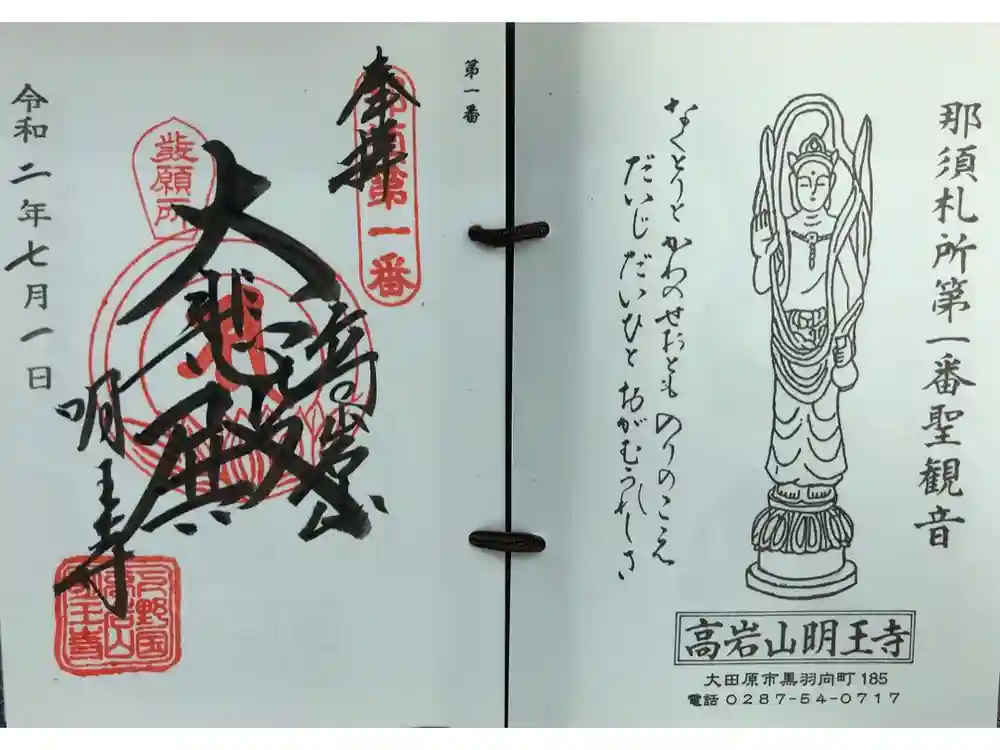 那須札所第一番聖観音
なくとりと かわのせおとも のりのこえ
だいじだいひと おがむうれしさ
高岩山明王寺
大田原市黒羽向町 185
電話 0287-54-0717
第一番
奉拝
那須第一番
発願所
大悲殿
高岩山
明王寺
令和二年七月一日